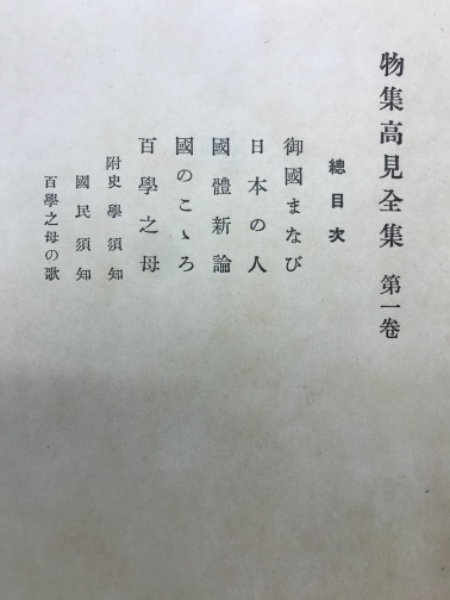 物集高見全集 第一卷
總目次
御國まなび
日本の人
國體新論
國のこゝろ
百學之母
附史學須知
國民須知
百學之母の歌